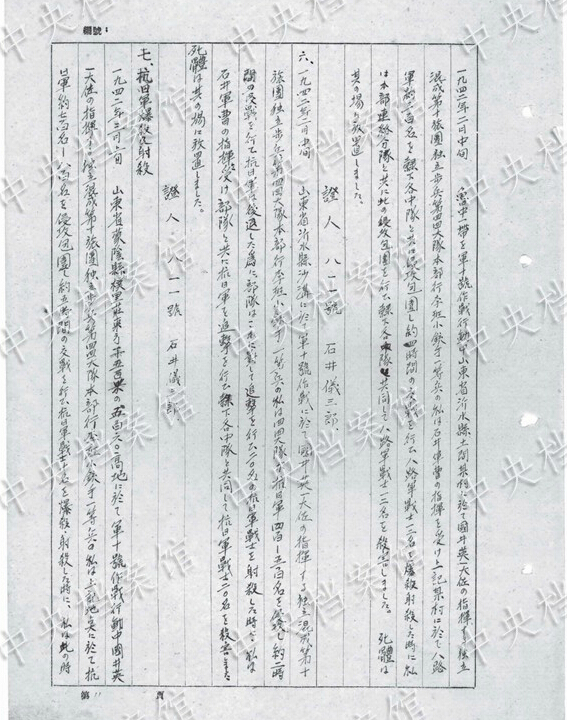 編號：
一九四二年二月中旬 魯中一帶を軍十號作戰行動中山東省沂水縣 某村に於て國井英一大佐の指揮する獨立
混成第十旅團獨立步兵第四四大隊本部行李班小銃手一等兵の私は石井軍曹の指揮を受け上記某村に於て八路
軍約二百名を 各中隊と共に侵攻包圍し約四時間の交戰を行い八路軍戰士 名を爆殺射殺した時に私
は本部連絡分隊と共に此の侵攻包圍を行い 各中隊と共同して八路軍戰士 名を殺害しました。 死體は
其の場に放置しました。
證人 八一一號 石井儀三郎
六、一九四二年二月中旬 山東省沂水縣沙溝に於て軍十號作戰に於て國井英一大佐の指揮する獨立混成第十
旅團獨立步兵第四四大隊本部行李班小銃手一等兵の私は四四大隊が抗日軍四百—五百名を侵攻し約二時
間の交戰を行い抗日軍は後退した為に部隊はこれに對して追擊を行い二〇名の抗日軍戰士を射殺した時に 私は
石井軍曹の指揮を受け部隊と共に抗日軍を追擊を行い 各中隊と共同して抗日軍戰士二〇名を殺害しました
死體は其の場に放置しました。
證人 八一一號 石井儀三郎
七、抗日軍爆殺及射殺
一九四二年三月上旬 山東省蒙陰縣 高地に於て 軍十號作戰行動中國井英
一大佐の指揮する獨立混成第十旅團獨立步兵第四四大隊本部行李班小銃手一等兵の私は上記地點に於て抗
日軍約七百名—八百名を侵攻包圍して約五時間の交戰を行い抗日軍戰士 名を爆殺、射殺した時に、私は此の時
第 11 頁
中央档案馆